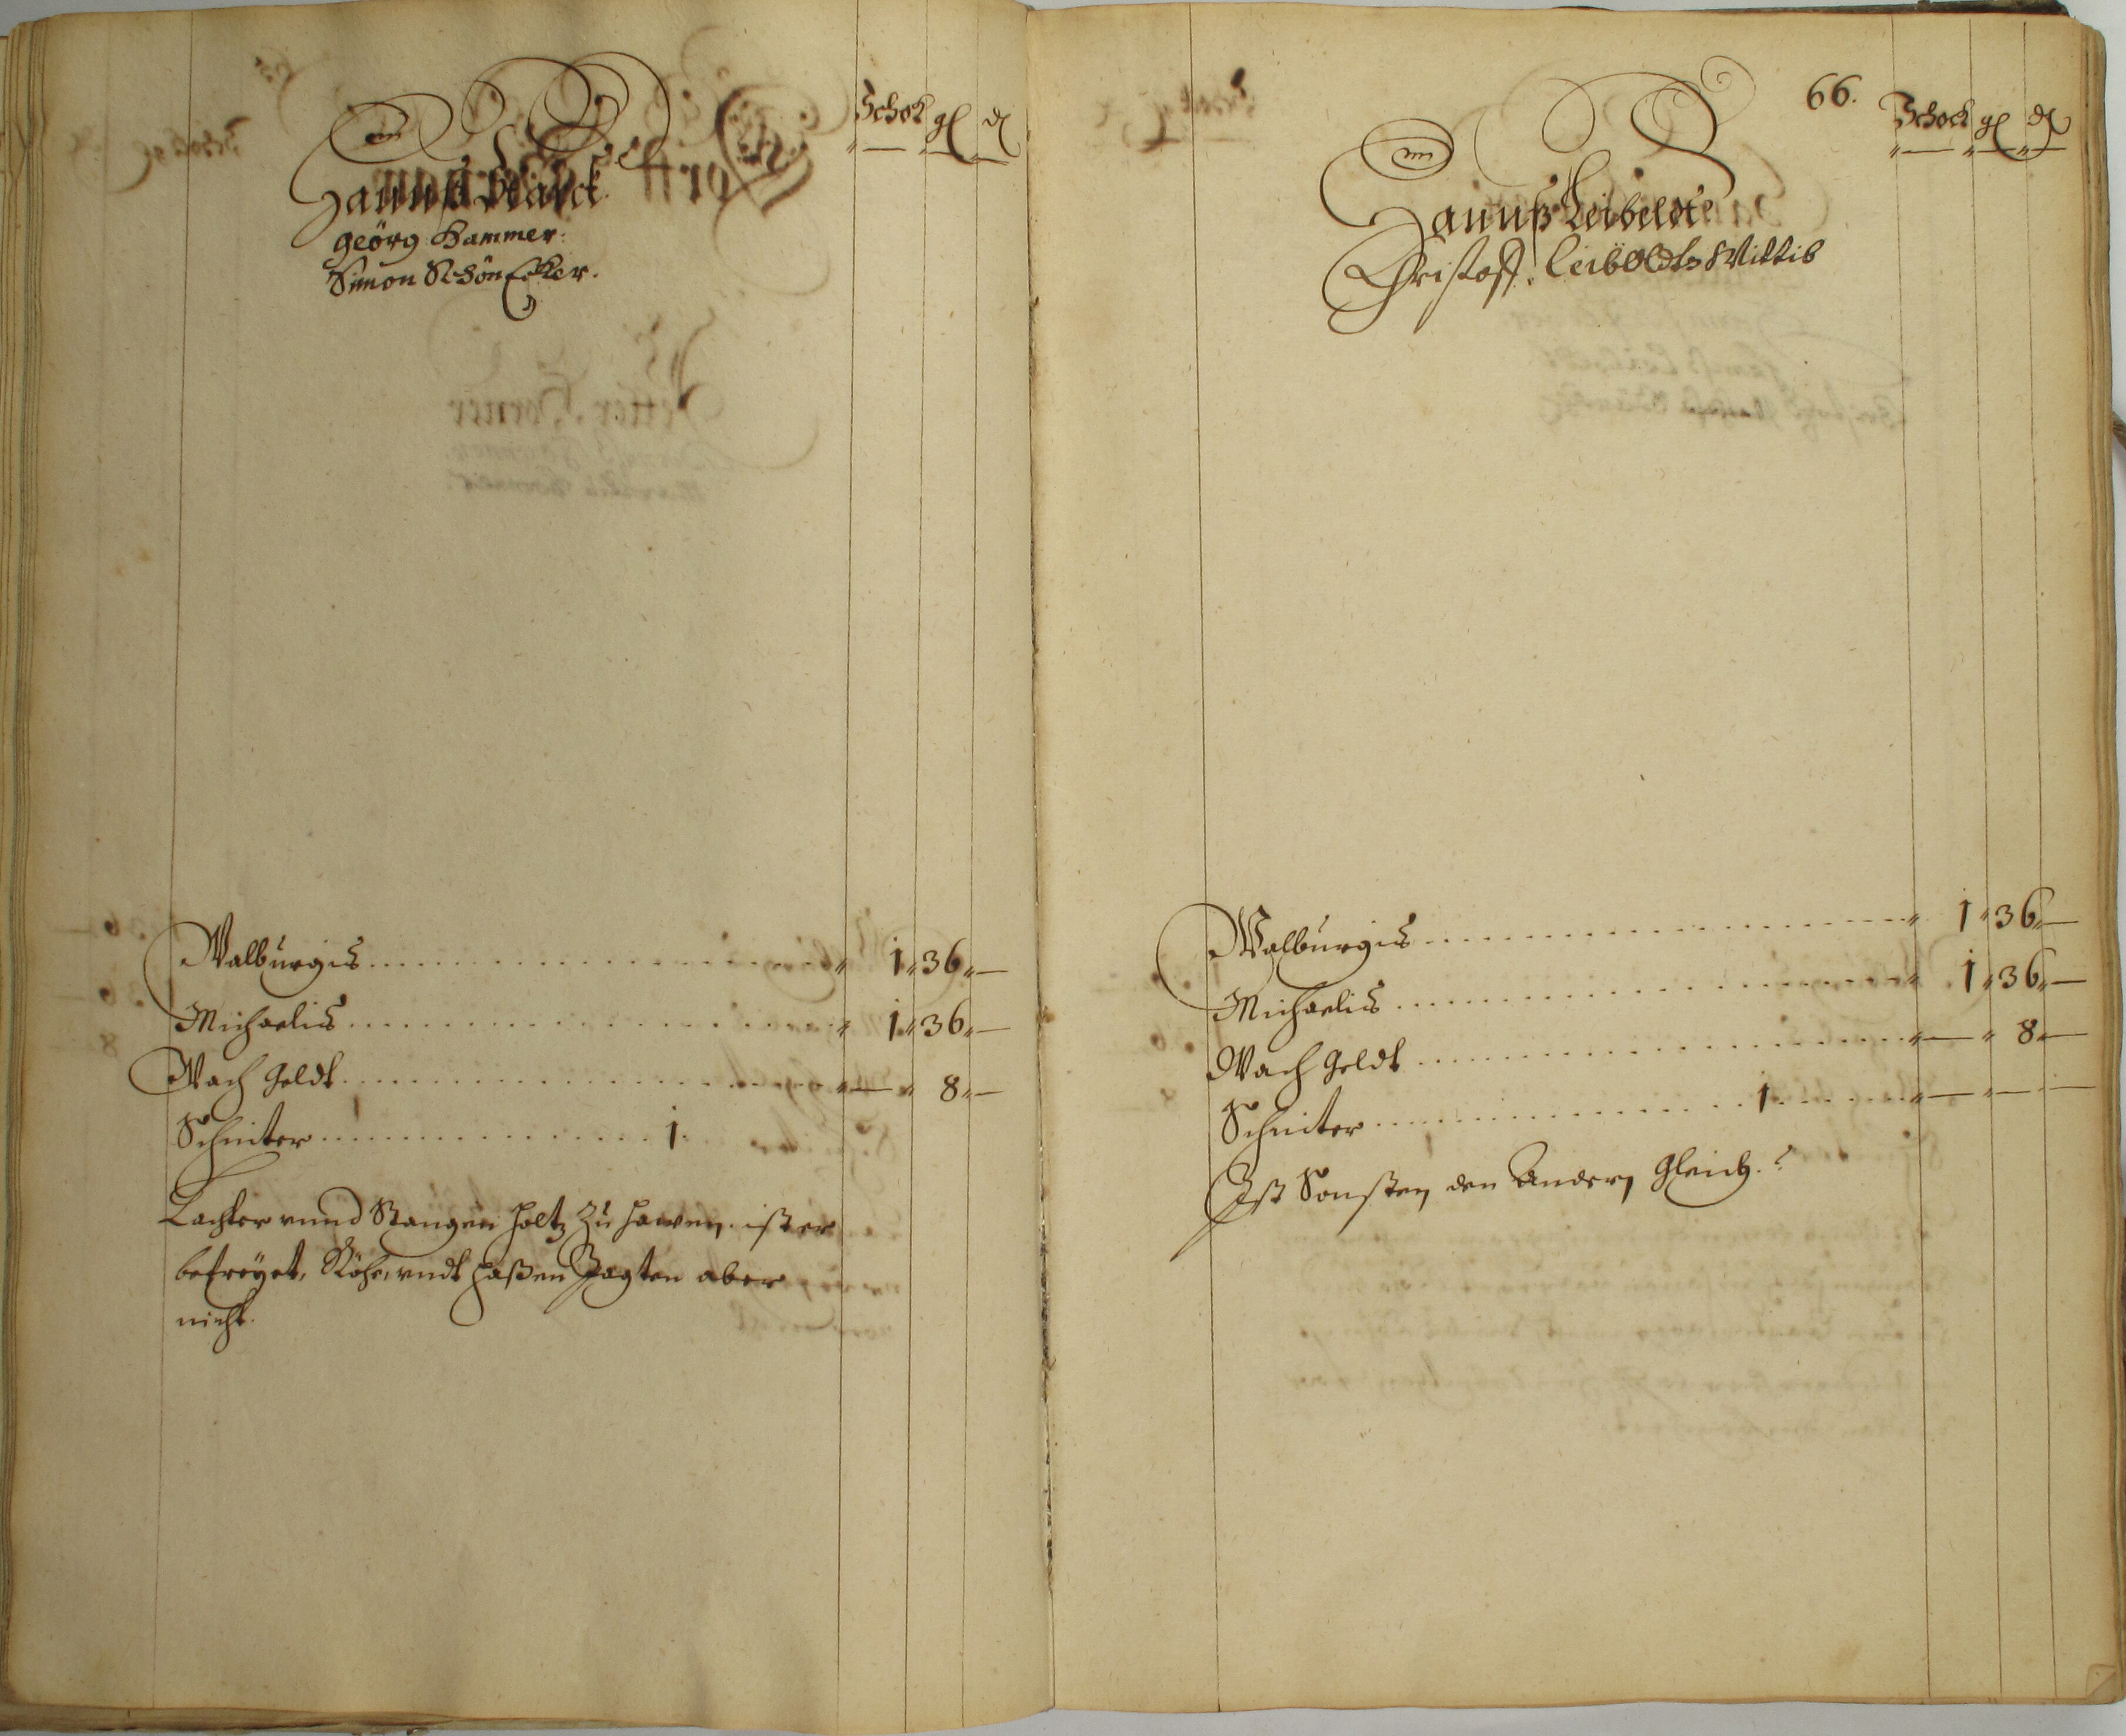 Schok gl d
Hannß Starck
geörg Hammer.
Simon Schön Ecker.
Walburgis 1 36 —
Michaelis 1 36 —
Wach Geldt — 8 —
Schniter 1.
Lachter unnd Stangen holtz Zu hawen. ist er
befreyet, Röhe, undt haßen Jagten aber
nicht.
66.
Schock gl d
Hannß Leibeldt
Christoff. Leiboldts Wittib
Walburgis 1 36 —
Michaelis 1 36 —
Wach Geldt — 8 —
Schniter 1 — — —
Ist Sonsten den Andern Gleich.